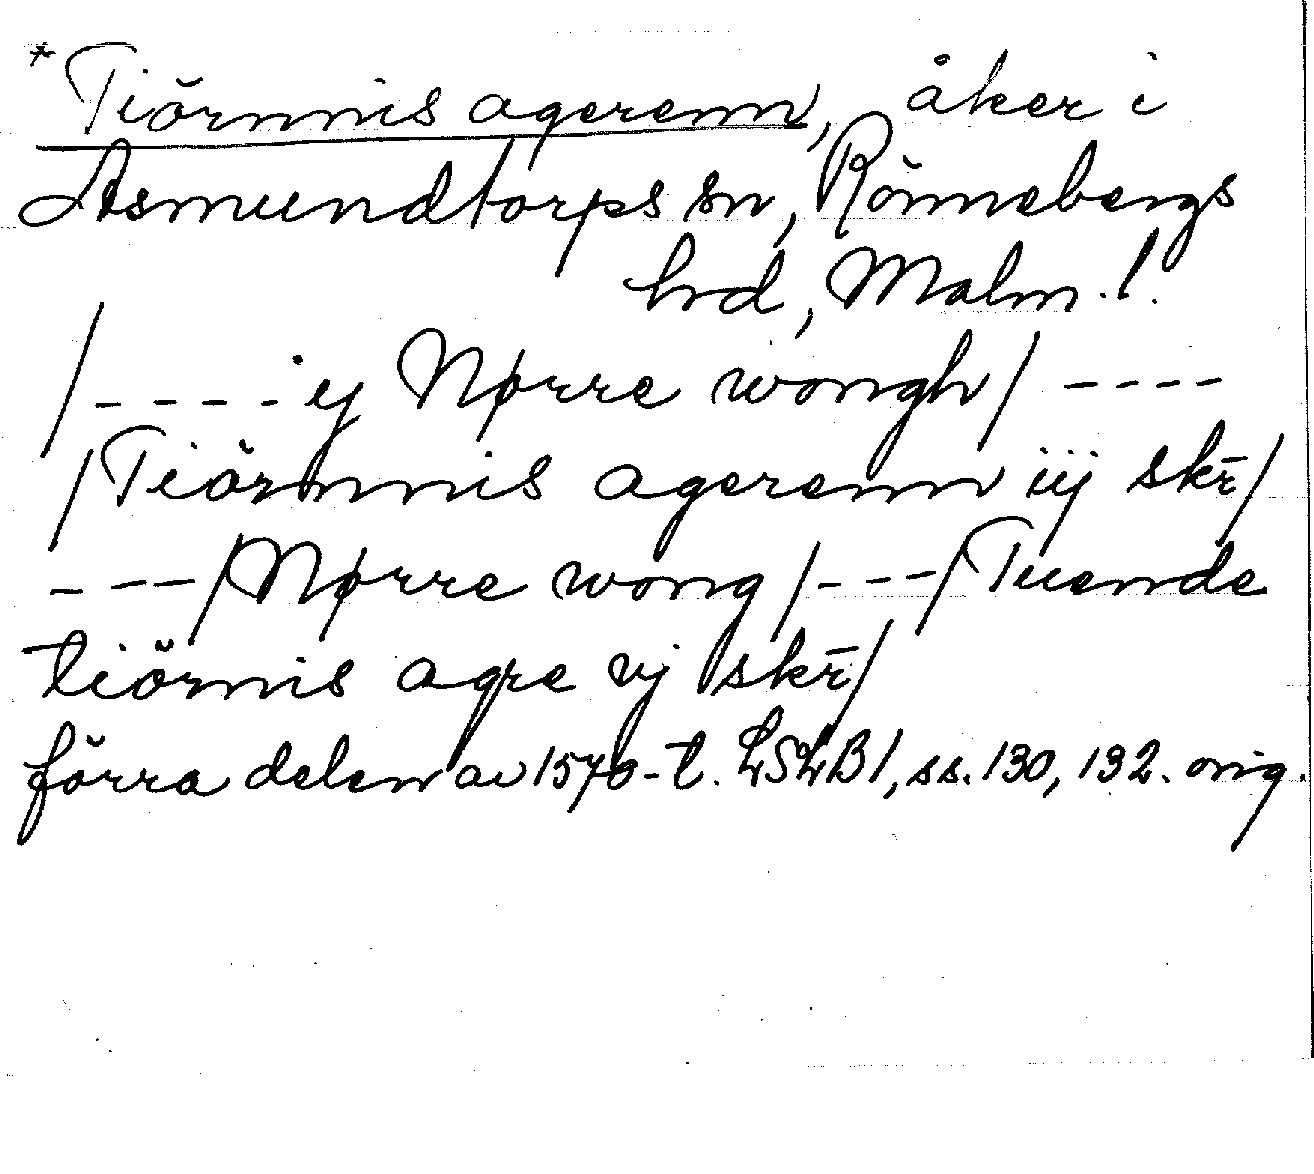 *Tiörnnis agerenn, åker i
Asmundtorps sn, Rönnebergs
hrd, Malm. l.
/ - - - - ij Nørre wongh / - - - -
/ Tiörnnis agerenn iij skr̄ /
- - - / Nørre wong / - - - / Tuende
tiörnis agre vj skr̄ /
förra delen av 1570-t. LSLB 1, ss. 130, 132. orig.